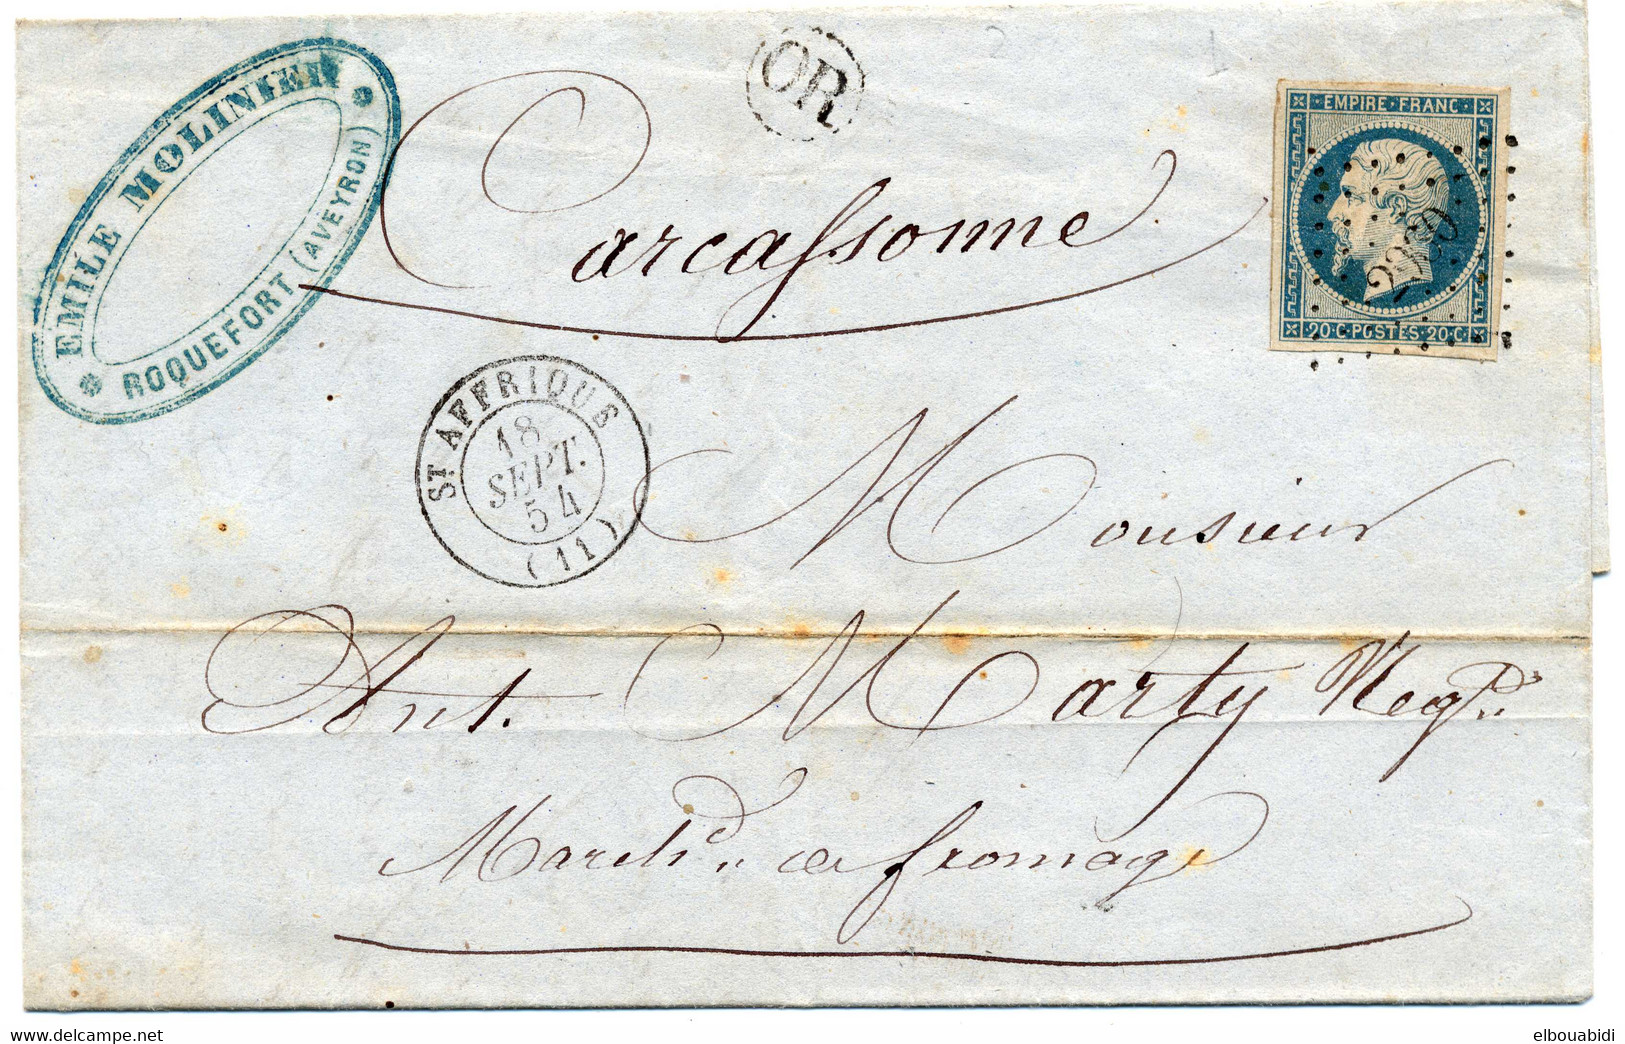 EMILE MOLINIER
ROQUEFORT (AVEYRON)
OR
EMPIRE·FRANC·
20·C·POSTES·20·C·
Carcassonne
ST. AFFRIQUE
18
SEPT.
54
(11)
Monsieur
Ant. Marty Negt.
Marchd. de fromage
delcampe.net
elbouabidi